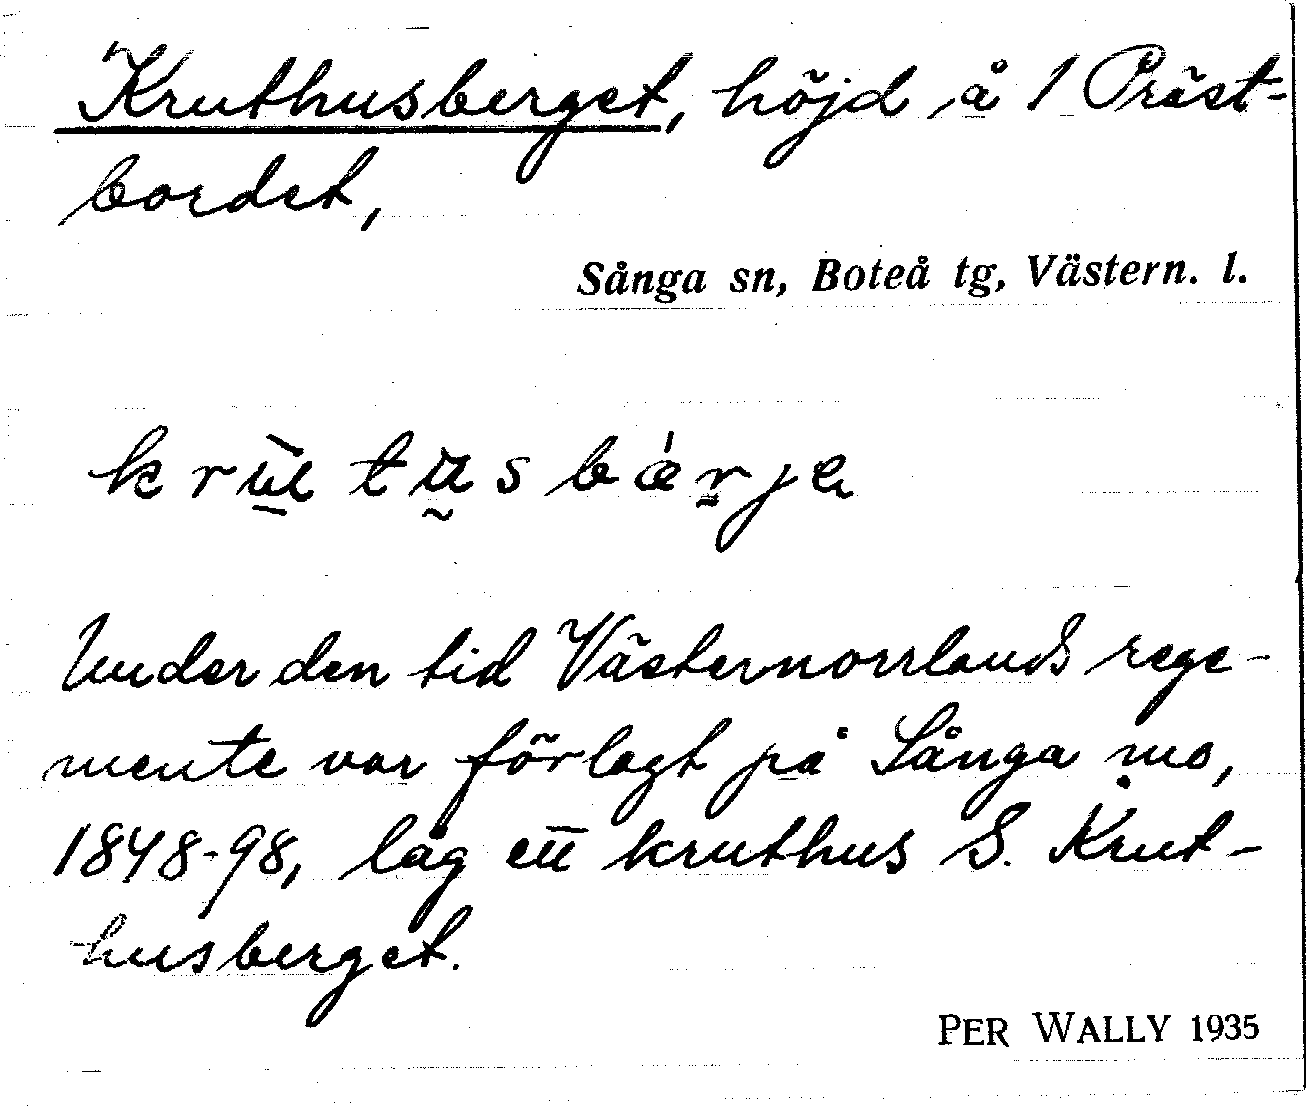 Kruthusberget, höjd å 1 Präst-
bordet,
Sånga sn, Boteå tg, Västern. l.
Under den tid Västernorrlands rege-
mente var förlagt på Sånga mo,
1848-98, låg ett kruthus S. Krut-
husberget.
PER WALLY 1935